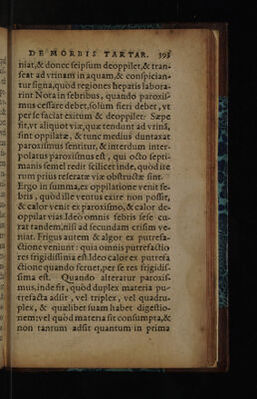 DE MORBIS TARTAR. 393
niat,& donec seipsum deoppilet,& tran-
seat ad vrinam in aquam,& conspician-
tur signa,quòd regiones hepatis labora-
rint Nota in febribus, quando paroxis-
mus cessare debet,solùm fieri debet, vt
per se faciat exitum & deoppilet: Sæpe
fit,vt aliquot viæ,quæ tendunt ad vrinā,
sint oppilatæ, & tunc medius duntaxat
paroxismus sentitur, & interdum inter-
polatus paroxismus est, qui octo septi-
manis semel redit scilicet inde, quòd ite
rum prius reseratæ viæ obstructæ sint.
Ergo in summa,ex oppilatione venit fe-
bris, quòd ille ventus exire non possit,
& calor venit ex paroxismo, & calor de-
oppilat vias. Ideò omnis febris sese cu-
rat tandem,nisi ad secundam crisim ve-
niat. Frigus autem & algor ex putrefa-
ctione veniunt: quia omnis putrefactio
res frigidissima est. Ideo calor ex putrefa
ctione quando feruet,per se res frigidis-
sima est. Quando alteratur paroxis-
mus,inde fit, quòd duplex materia pu-
trefacta adsit, vel triplex, vel quadru-
plex, & quælibet suam habet digestio-
nem:vel quòd materia sit consumpta,&
non tantum adsit quantum in prima